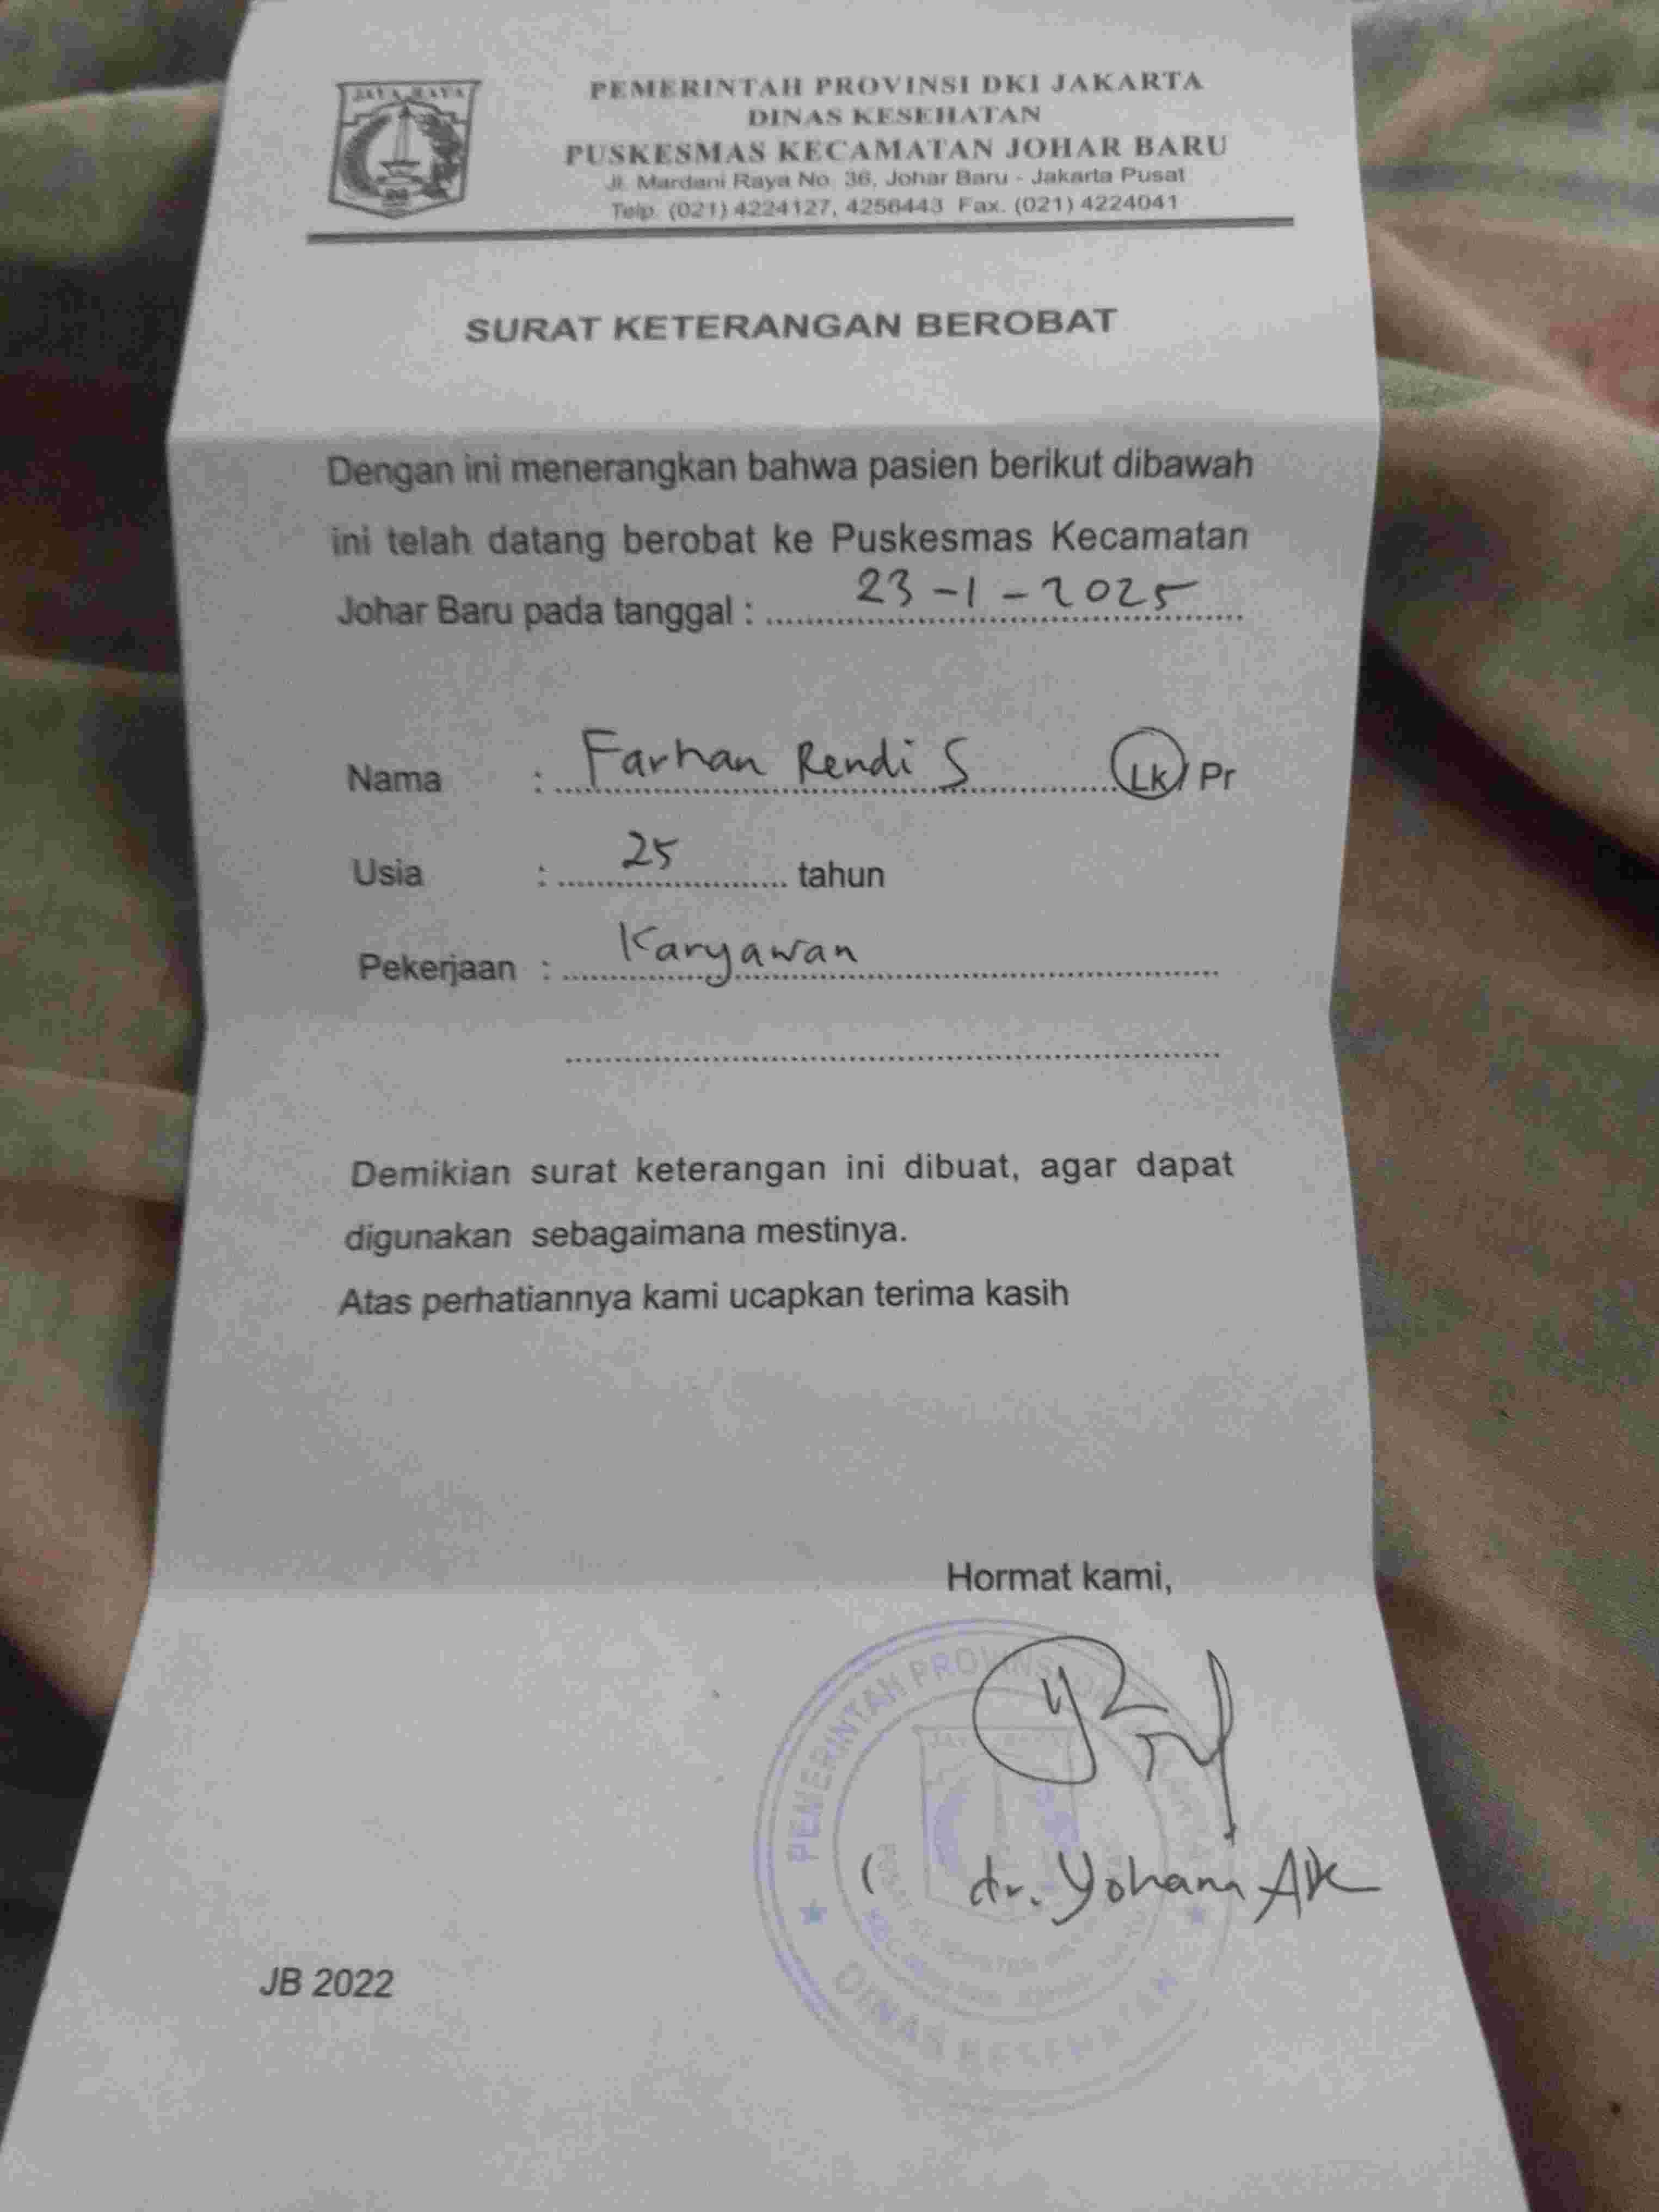 JAYA RAYA
PEMERINTAH PROVINSI DKI JAKARTA
DINAS KESEHATAN
PUSKESMAS KECAMATAN JOHAR BARU
Jl. Mardani Raya No. 36, Johar Baru - Jakarta Pusat
Telp. (021) 4224127, 4256443 Fax. (021) 4224041
SURAT KETERANGAN BEROBAT
Dengan ini menerangkan bahwa pasien berikut dibawah
ini telah datang berobat ke Puskesmas Kecamatan
Johar Baru pada tanggal : 23-1-2025
Nama : Farhan Rendi S Lk / Pr
Usia : 25 tahun
Pekerjaan : Karyawan
Demikian surat keterangan ini dibuat, agar dapat
digunakan sebagaimana mestinya.
Atas perhatiannya kami ucapkan terima kasih
Hormat kami,
PEMERINTAH PROVINSI
( dr. Yohana
DINAS KESEHATAN
JB 2022